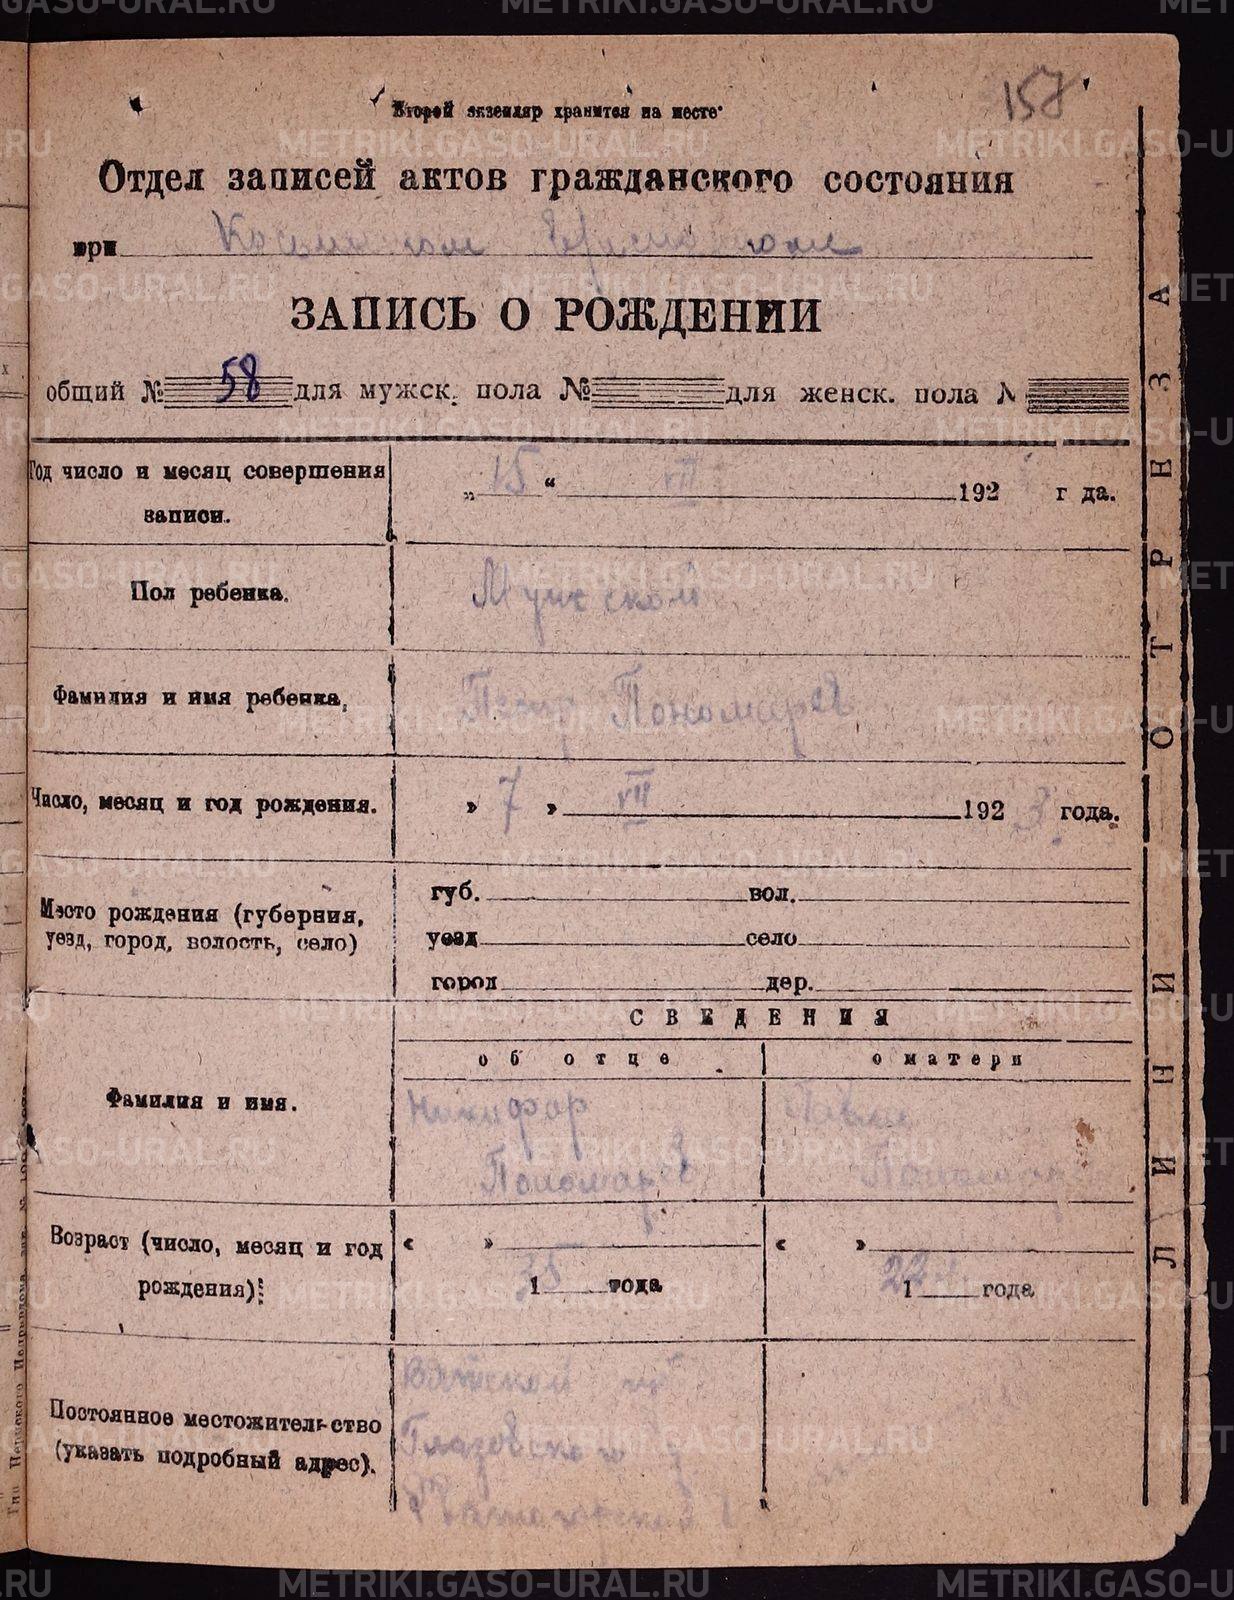 METRIKI.GASO-URAL.RU
157
Второй экземляр хранится на месте
Отдел записей актов гражданского состояния
при
ЗАПИСЬ О РОЖДЕНИИ
общий № 58 для мужск. пола № для женск. пола №
Год число и месяц совершения записи.
„15“ VII 192 г да.
Пол ребенка.
Мужской
Фамилия и имя ребенка,
Петр Пономарев
Число, месяц и год рождения.
» 7 » VII 1923 года.
Место рождения (губерния,
уезд, город, волость, село)
губ. вол.
уезд село
город дер.
СВЕДЕНИЯ
об отце
о матери
Фамилия и имя.
Никифор
Пономарев
Возраст (число, месяц и год
рождения)
« » « »
35
1 года
22
1 года
Постоянное местожительство
(указать подробный адрес).
Вятской губ
Глазовского у
ЛИНИЯ ОТРЕЗА